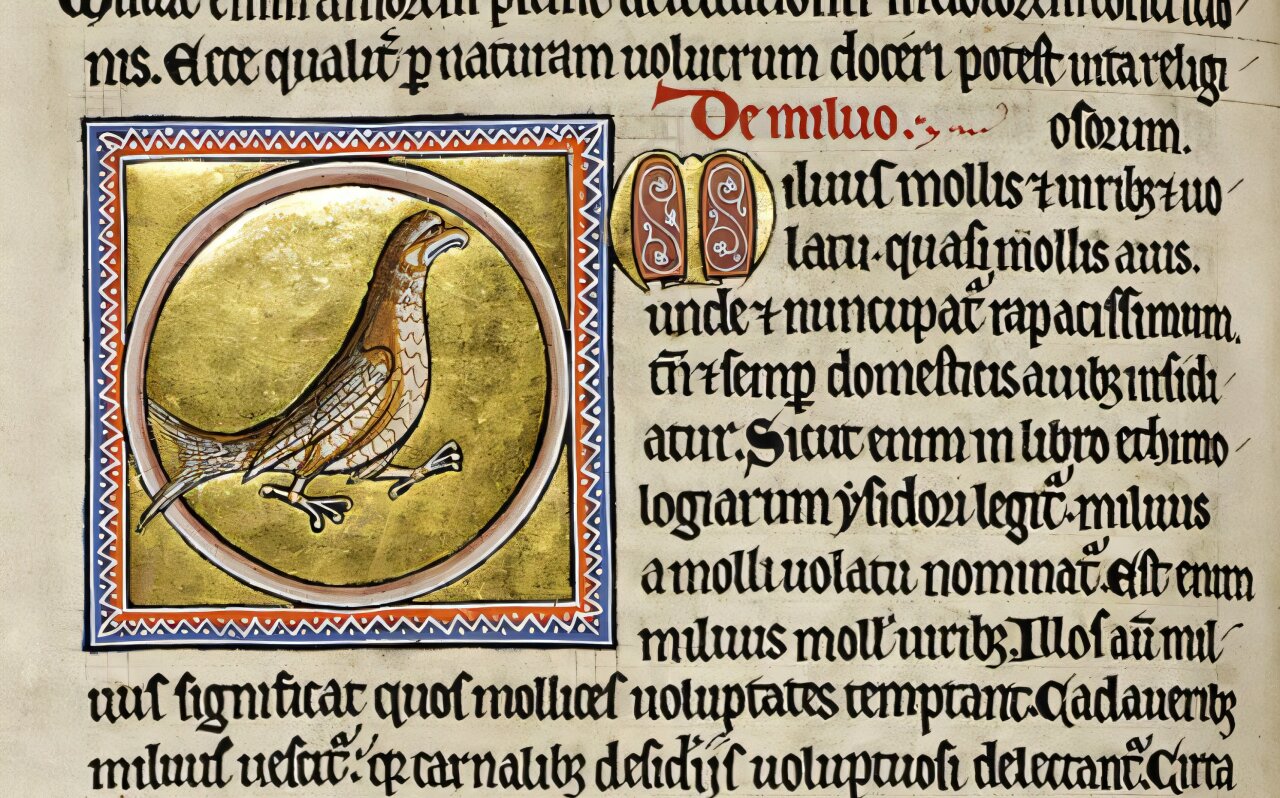 nis. Ecce qualit̄ ꝑ naturam uolucrum doceri potest uita religi
De miluo.
osorum.
Miluus mollis ⁊ uiribꝫ ⁊ uo
latu. quasi mollis auis.
unde ⁊ nuncupat᷑ rapacissimum.
tn̄ ⁊ semꝑ domesticis auibꝫ insidi
atur. Sicut enim in libro ethimo
logiarum ẏsidori legit᷑. miluus
a molli uolatu nominat᷑. Est enim
miluus moll' uiribꝫ. Illos aū mil
uus significat quos mollices uoluptates temptant. Cadaueribꝫ
miluus uescit᷑. qꝛ carnalibꝫ desidijs uoluptuosi delectant᷑. Circa